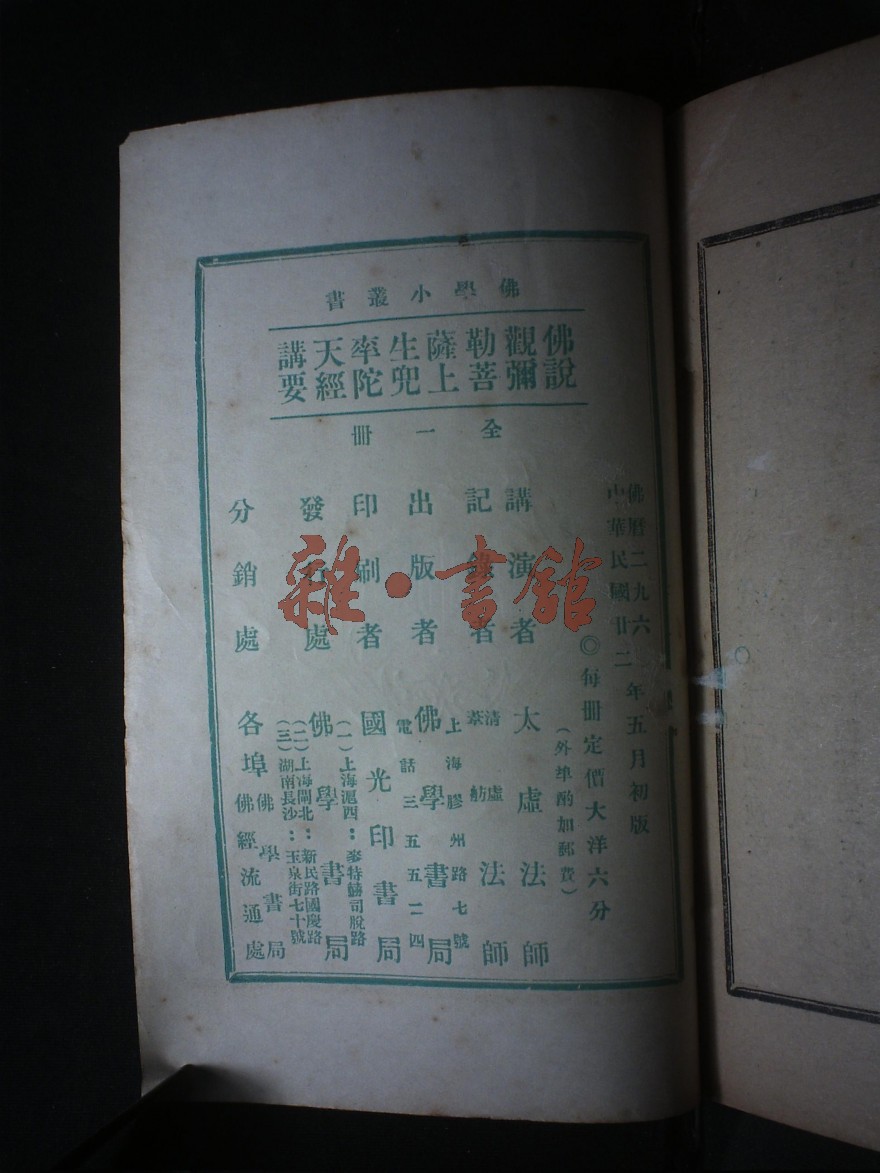 佛學小叢書
佛說觀彌勒菩薩上生兜率陀天經講要
全一冊
佛曆二九六 年五月初版
中華民國廿二
◎每冊定價大洋六分
(外埠酌加郵費)
講演者 太虛法師
記錄者 清虛 葦舫 法師
出版者 佛學書局
上海膠州路七號
電話三五五二四
印刷者 國光印書局
發行處 佛學書局
(一)上海滬西:麥特赫司脫路
(二)上海閘北:新民路國慶路
(三)湖南長沙:玉泉街七十號
分銷處 各埠 佛學書局 佛經流通處
雜·書館